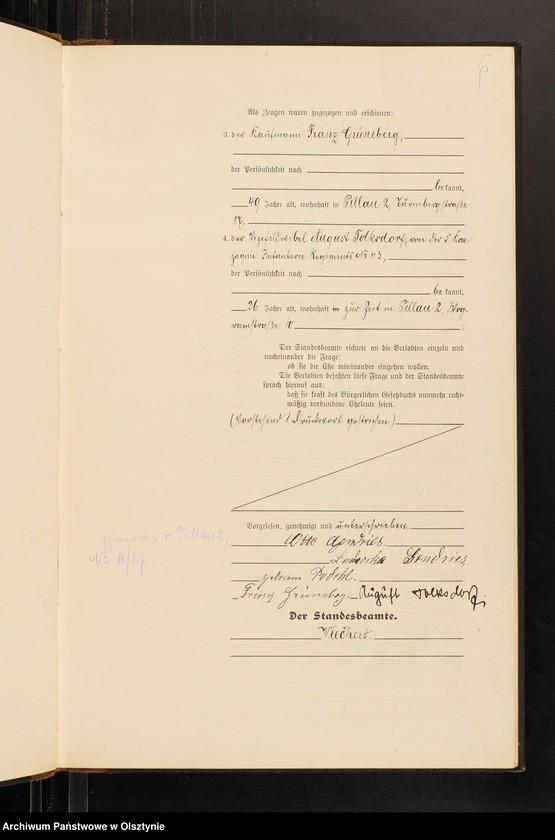 Als Zeugen waren zugezogen und erschienen:
3. der Kaufmann Franz Grüneberg,
der Persönlichkeit nach
bekannt,
49 Jahre alt, wohnhaft in Pillau 2, Turmbergstraße
17,
4. der Vizefeldwebel August Tolksdorf, von der 5 Kom-
pagnie Infanterie Regiments № 43,
der Persönlichkeit nach
bekannt,
26 Jahre alt, wohnhaft in zur Zeit in Pillau 2,
straße 10
;
Der Standesbeamte richtete an die Verlobten einzeln und
nacheinander die Frage:
ob sie die Ehe miteinander eingehen wollen.
Die Verlobten bejahten diese Frage und der Standesbeamte
sprach hierauf aus:
daß sie kraft des Bürgerlichen Gesetzbuchs nunmehr recht-
mäßig verbundene Eheleute seien.
(Vorstehend 1 Druckwort gestrichen.)
Vorgelesen, genehmigt und unterschrieben
Otto
geborene
Franz Grüneberg. August Tolksdorf.
Pillau 2,
Der Standesbeamte.
Archiwum Państwowe w Olsztynie